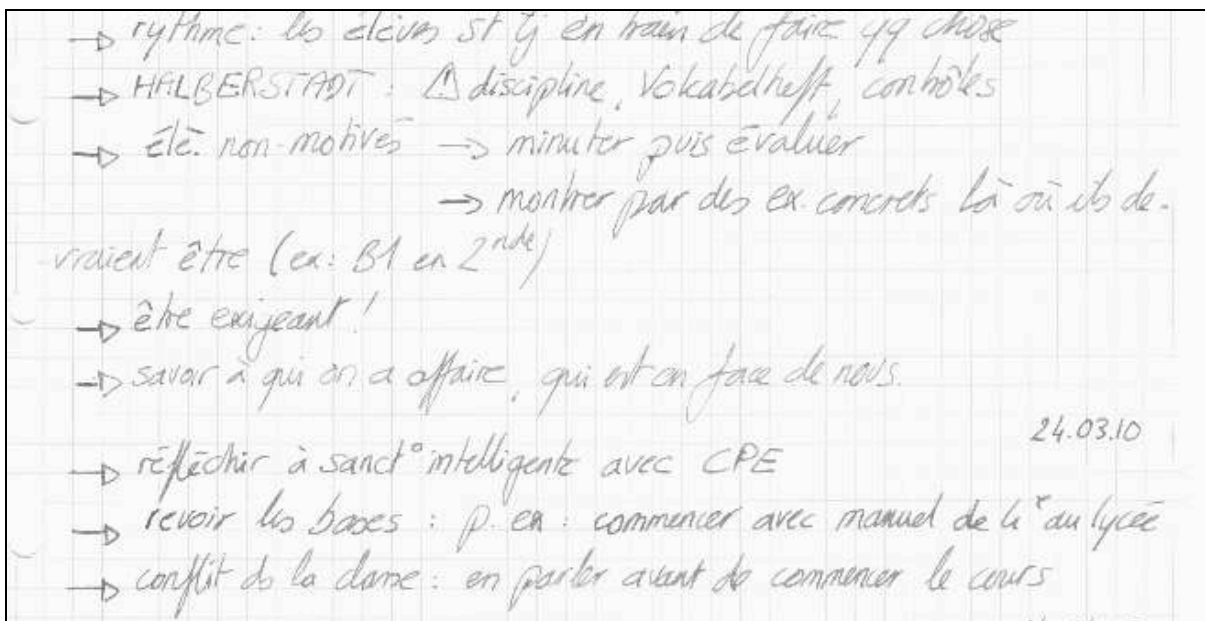 → rythme : les élèves st tj en train de faire qq chose
→ HALBERSTADT : ⚠ discipline, Vokabelheft, contrôles
→ élè. non-motivés → minuter puis évaluer
→ montrer par des ex. concrets là où ils de-
vraient être (ex : B1 en 2nde)
→ être exigeant !
→ savoir à qui on a affaire, qui est en face de nous.
24.03.10
→ réfléchir à sanct° intelligente avec CPE
→ revoir les bases : p. ex : commencer avec manuel de 4e au lycée
→ conflit ds la classe : en parler avant de commencer le cours